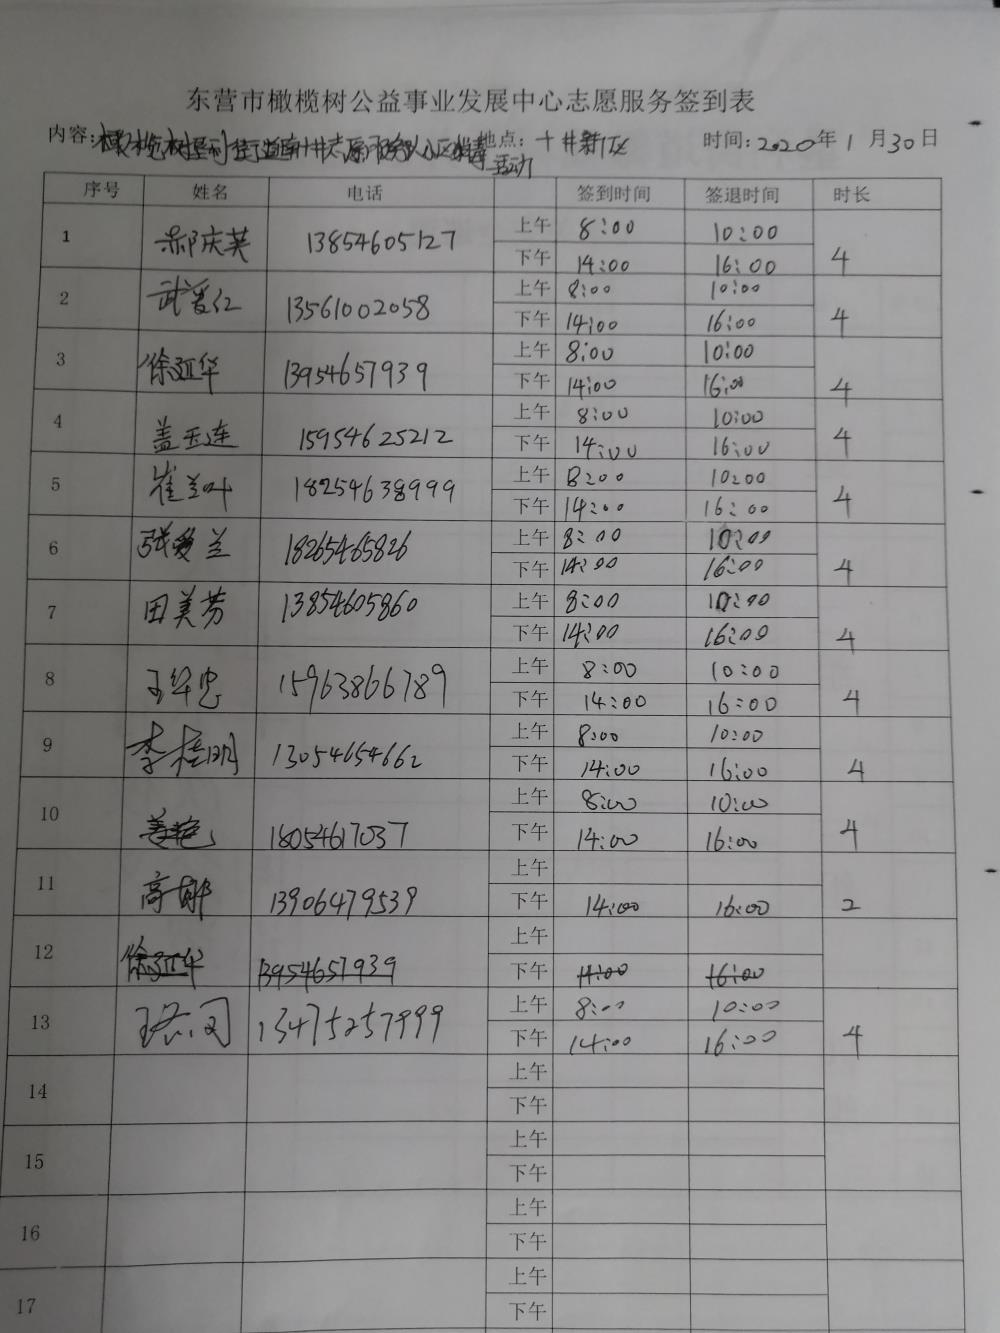 东营市橄榄树公益事业发展中心志愿服务签到表
内容: 橄榄树垦利 地点: 十井新区 时间: 2020年1月30日
活动
序号 姓名 电话 签到时间 签退时间 时长
1 郝庆英 13854605127 上午 8:00 10:00
下午 14:00 16:00 4
2 武爱红 13561002058 上午 8:00 10:00
下午 14:00 16:00 4
3 徐延华 13954657939 上午 8:00 10:00
下午 14:00 16:00 4
4 盖玉连 15954625212 上午 8:00 10:00
下午 14:00 16:00 4
5 崔兰叶 18254638999 上午 8:00 10:00
下午 14:00 16:00 4
6 张爱兰 18265465826 上午 8:00 10:00
下午 14:00 16:00 4
7 田美芳 13854605860 上午 8:00 10:00
下午 14:00 16:00 4
8 王华忠 15963866789 上午 8:00 10:00
下午 14:00 16:00 4
9 李梧明 13054654662 上午 8:00 10:00
下午 14:00 16:00 4
10 姜艳 18054617037 上午 8:00 10:00
下午 14:00 16:00 4
11 高郁 13906479539 上午
下午 14:00 16:00 2
12 徐延华 13954657939 上午
下午 14:00 16:00
13 13475257999 上午 8:00 10:00
下午 14:00 16:00 4
14 上午
下午
15 上午
下午
16 上午
下午
17 上午
下午